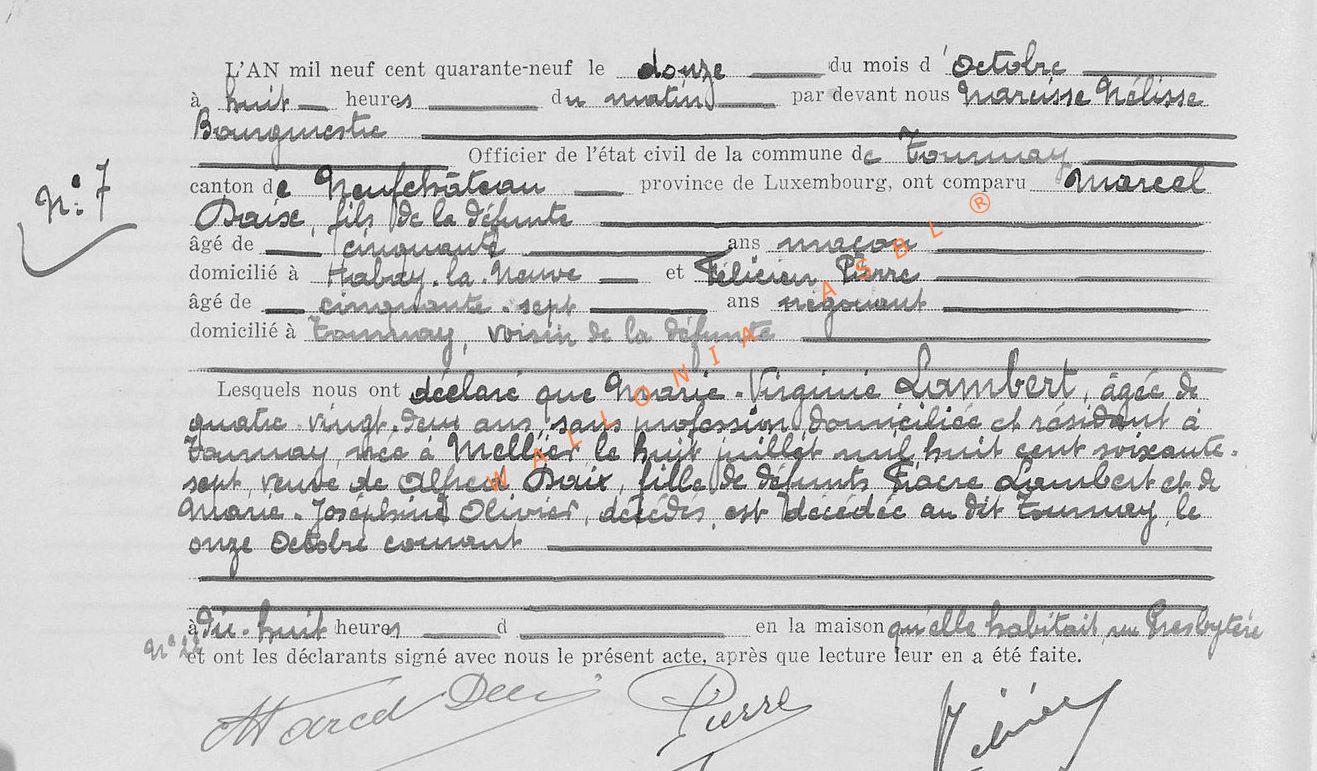 L'AN mil neuf cent quarante-neuf le douze du mois d'octobre
à huit heures du matin par devant nous Narcisse Nélisse
Bourgmestre
Officier de l'état civil de la commune de Tournay
N° 7
canton de Neufchâteau province de Luxembourg, ont comparu Marcel
Daix, fils de la défunte
âgé de cinquante ans maçon
domicilié à Habay-la-Neuve et Félicien Pierre
âgé de cinquante-sept ans négociant
domicilié à Tournay, voisin de la défunte
Lesquels nous ont déclaré que Marie-Virginie Lambert, âgée de
quatre-vingt-deux ans, sans profession, domiciliée et résidant à
Tournay, née à Mellier, le huit juillet mil huit cent soixante-
sept, veuve de Alfred Daix, fille de défunts Fiacre Lambert et de
Marie-Joséphine Olivier, décédés, est décédée au dit Tournay, le
onze octobre courant
à dix-huit heures d en la maison qu'elle habitait, rue Presbytère
N° 22
et ont les déclarants signé avec nous le présent acte, après que lecture leur en a été faite.
Marcel Daix Pierre
WALLONIA ASBL ®